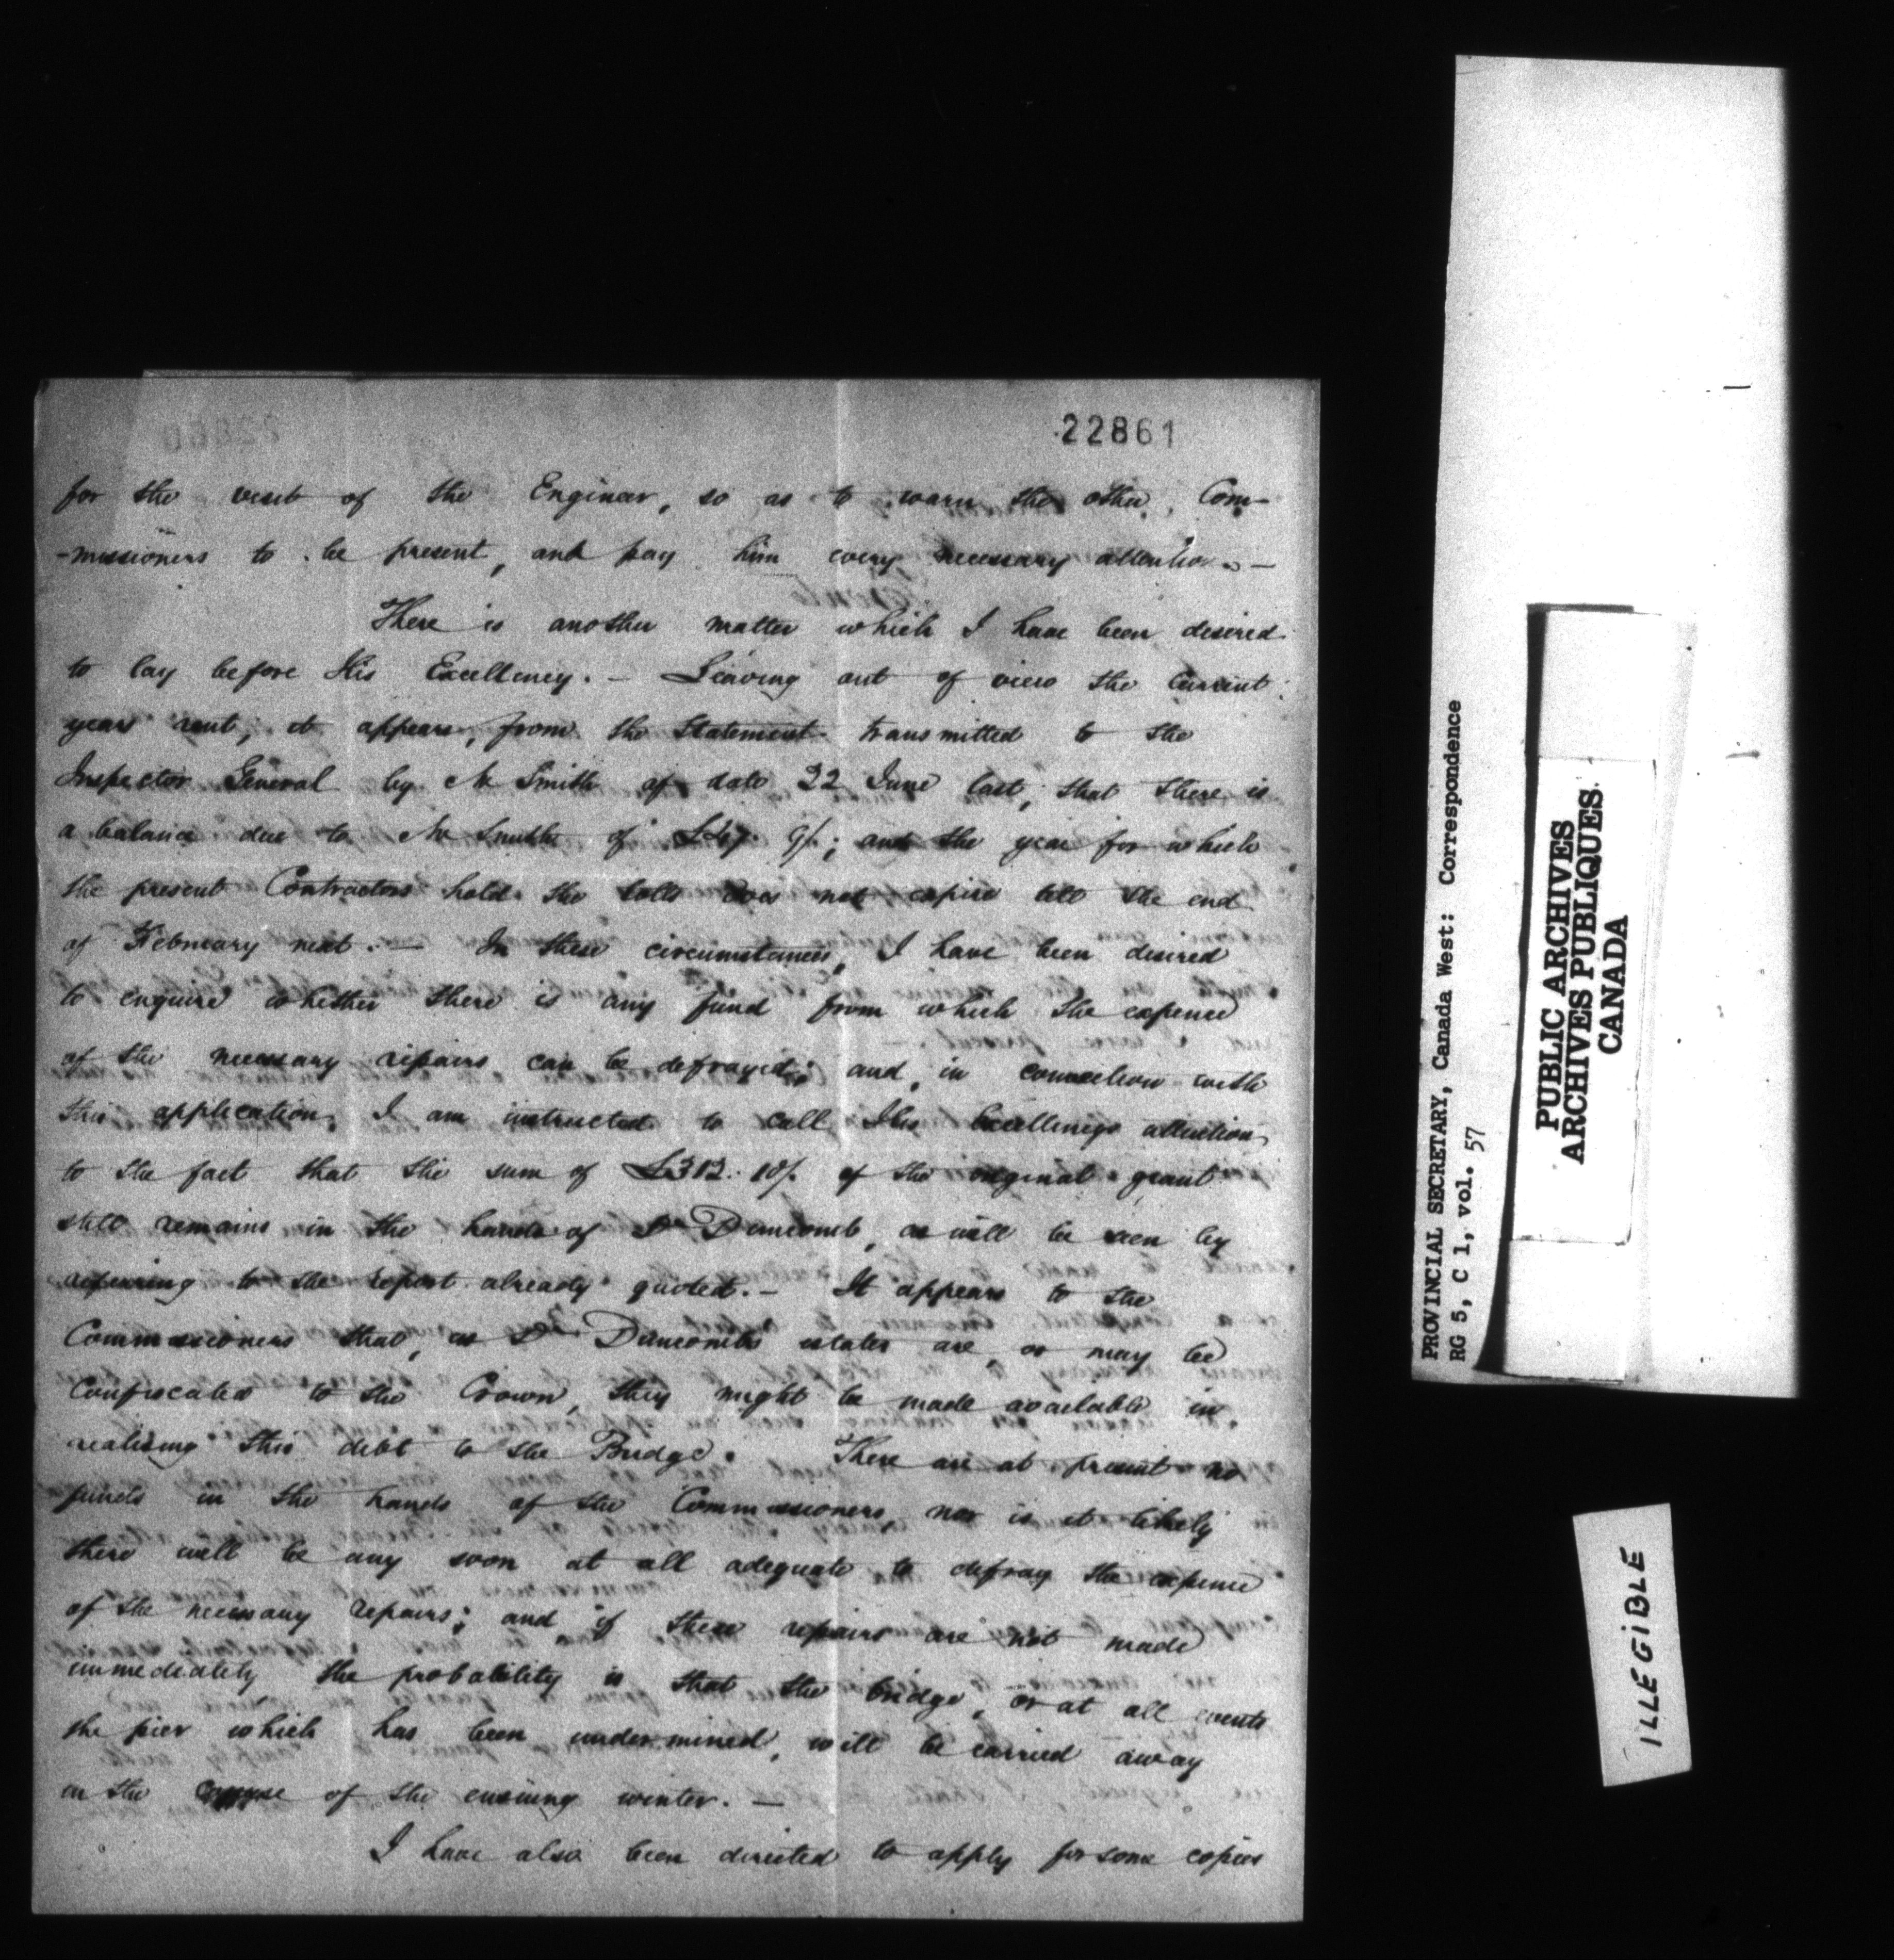 22861
for the visit of the Engineer, so as to warn the other Com-
-missioners to be present, and pay him every necessary attention. —
There is another matter which I have been desired
to lay before His Excellency. — Leaving out of view the current
years rent, it appears, from the Statement transmitted to the
Inspector General by Mr Smith of date 22 June last, that there is
a balance due to Mr Smith of 9/.; and the year for which
the present Contractors hold the tolls does not expire till the end
of February next. — In these circumstances, I have been desired
to enquire whether there is any fund from which the expense
of the necessary repairs can be defrayed; and, in connection with
this application, I am instructed to call His Excellencys attention
to the fact that the sum of £312. 10/. of the original grant
still remains in the hands of Dr Duncomb, as will be seen by
referring to the report already quoted. — It appears to the
Commissioners that, as Dr Duncombs estates are, or may be
confiscated to the Crown, they might be made available in
realizing this debt to the Bridge. There are at present no
funds in the hands of the Commissioners, nor is it likely
there will be any soon at all adequate to defray the expense
of the necessary repairs; and, if these repairs are not made
immediately the probability is that the bridge, or at all events
the pier which has been undermined, will be carried away
in the course of the ensuing winter. —
I have also been directed to apply for some copies
PROVINCIAL SECRETARY, Canada West: Correspondence
RG 5, C 1, vol. 57
PUBLIC ARCHIVES
ARCHIVES PUBLIQUES
CANADA
ILLEGIBLE